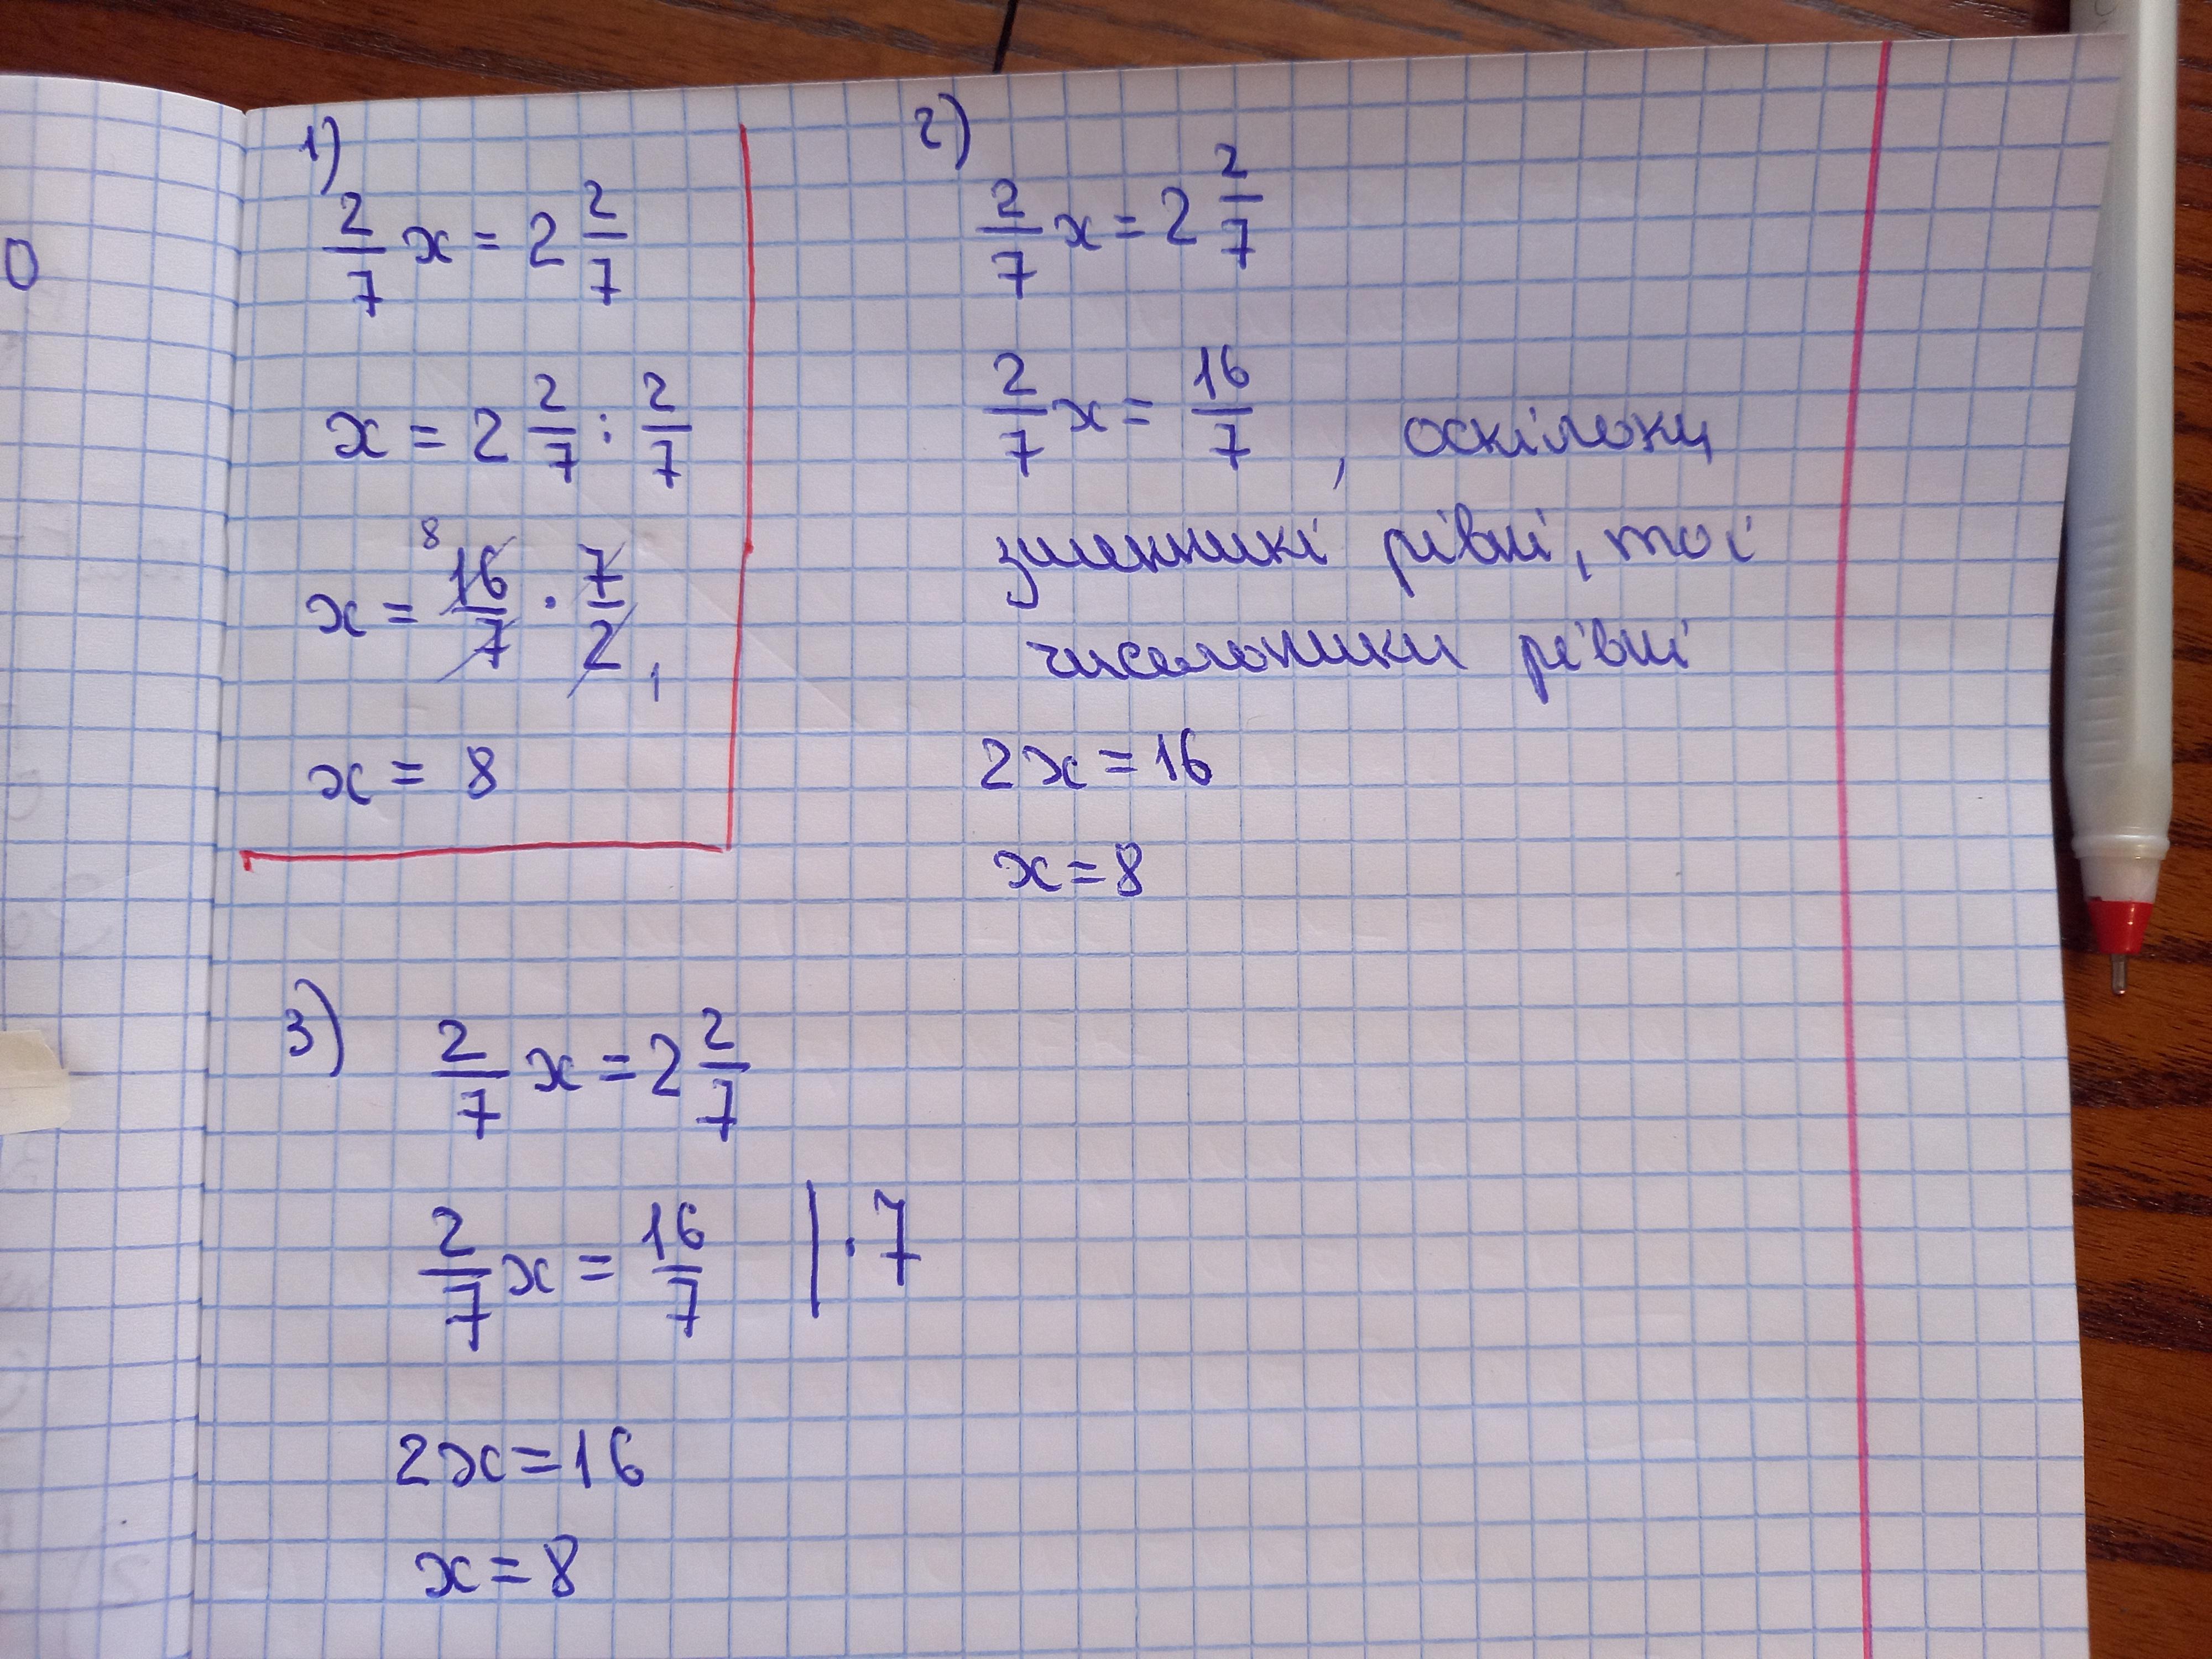 0
1)
2/7 x = 2 2/7
x = 2 2/7 : 2/7
x = 8 16/7 · 7/2 1
x = 8
2)
2/7 x = 2 2/7
2/7 x = 16/7 , оскільки
знаменники рівні, то і
чисельники рівні
2x = 16
x = 8
3) 2/7 x = 2 2/7
2/7 x = 16/7 | · 7
2x = 16
x = 8